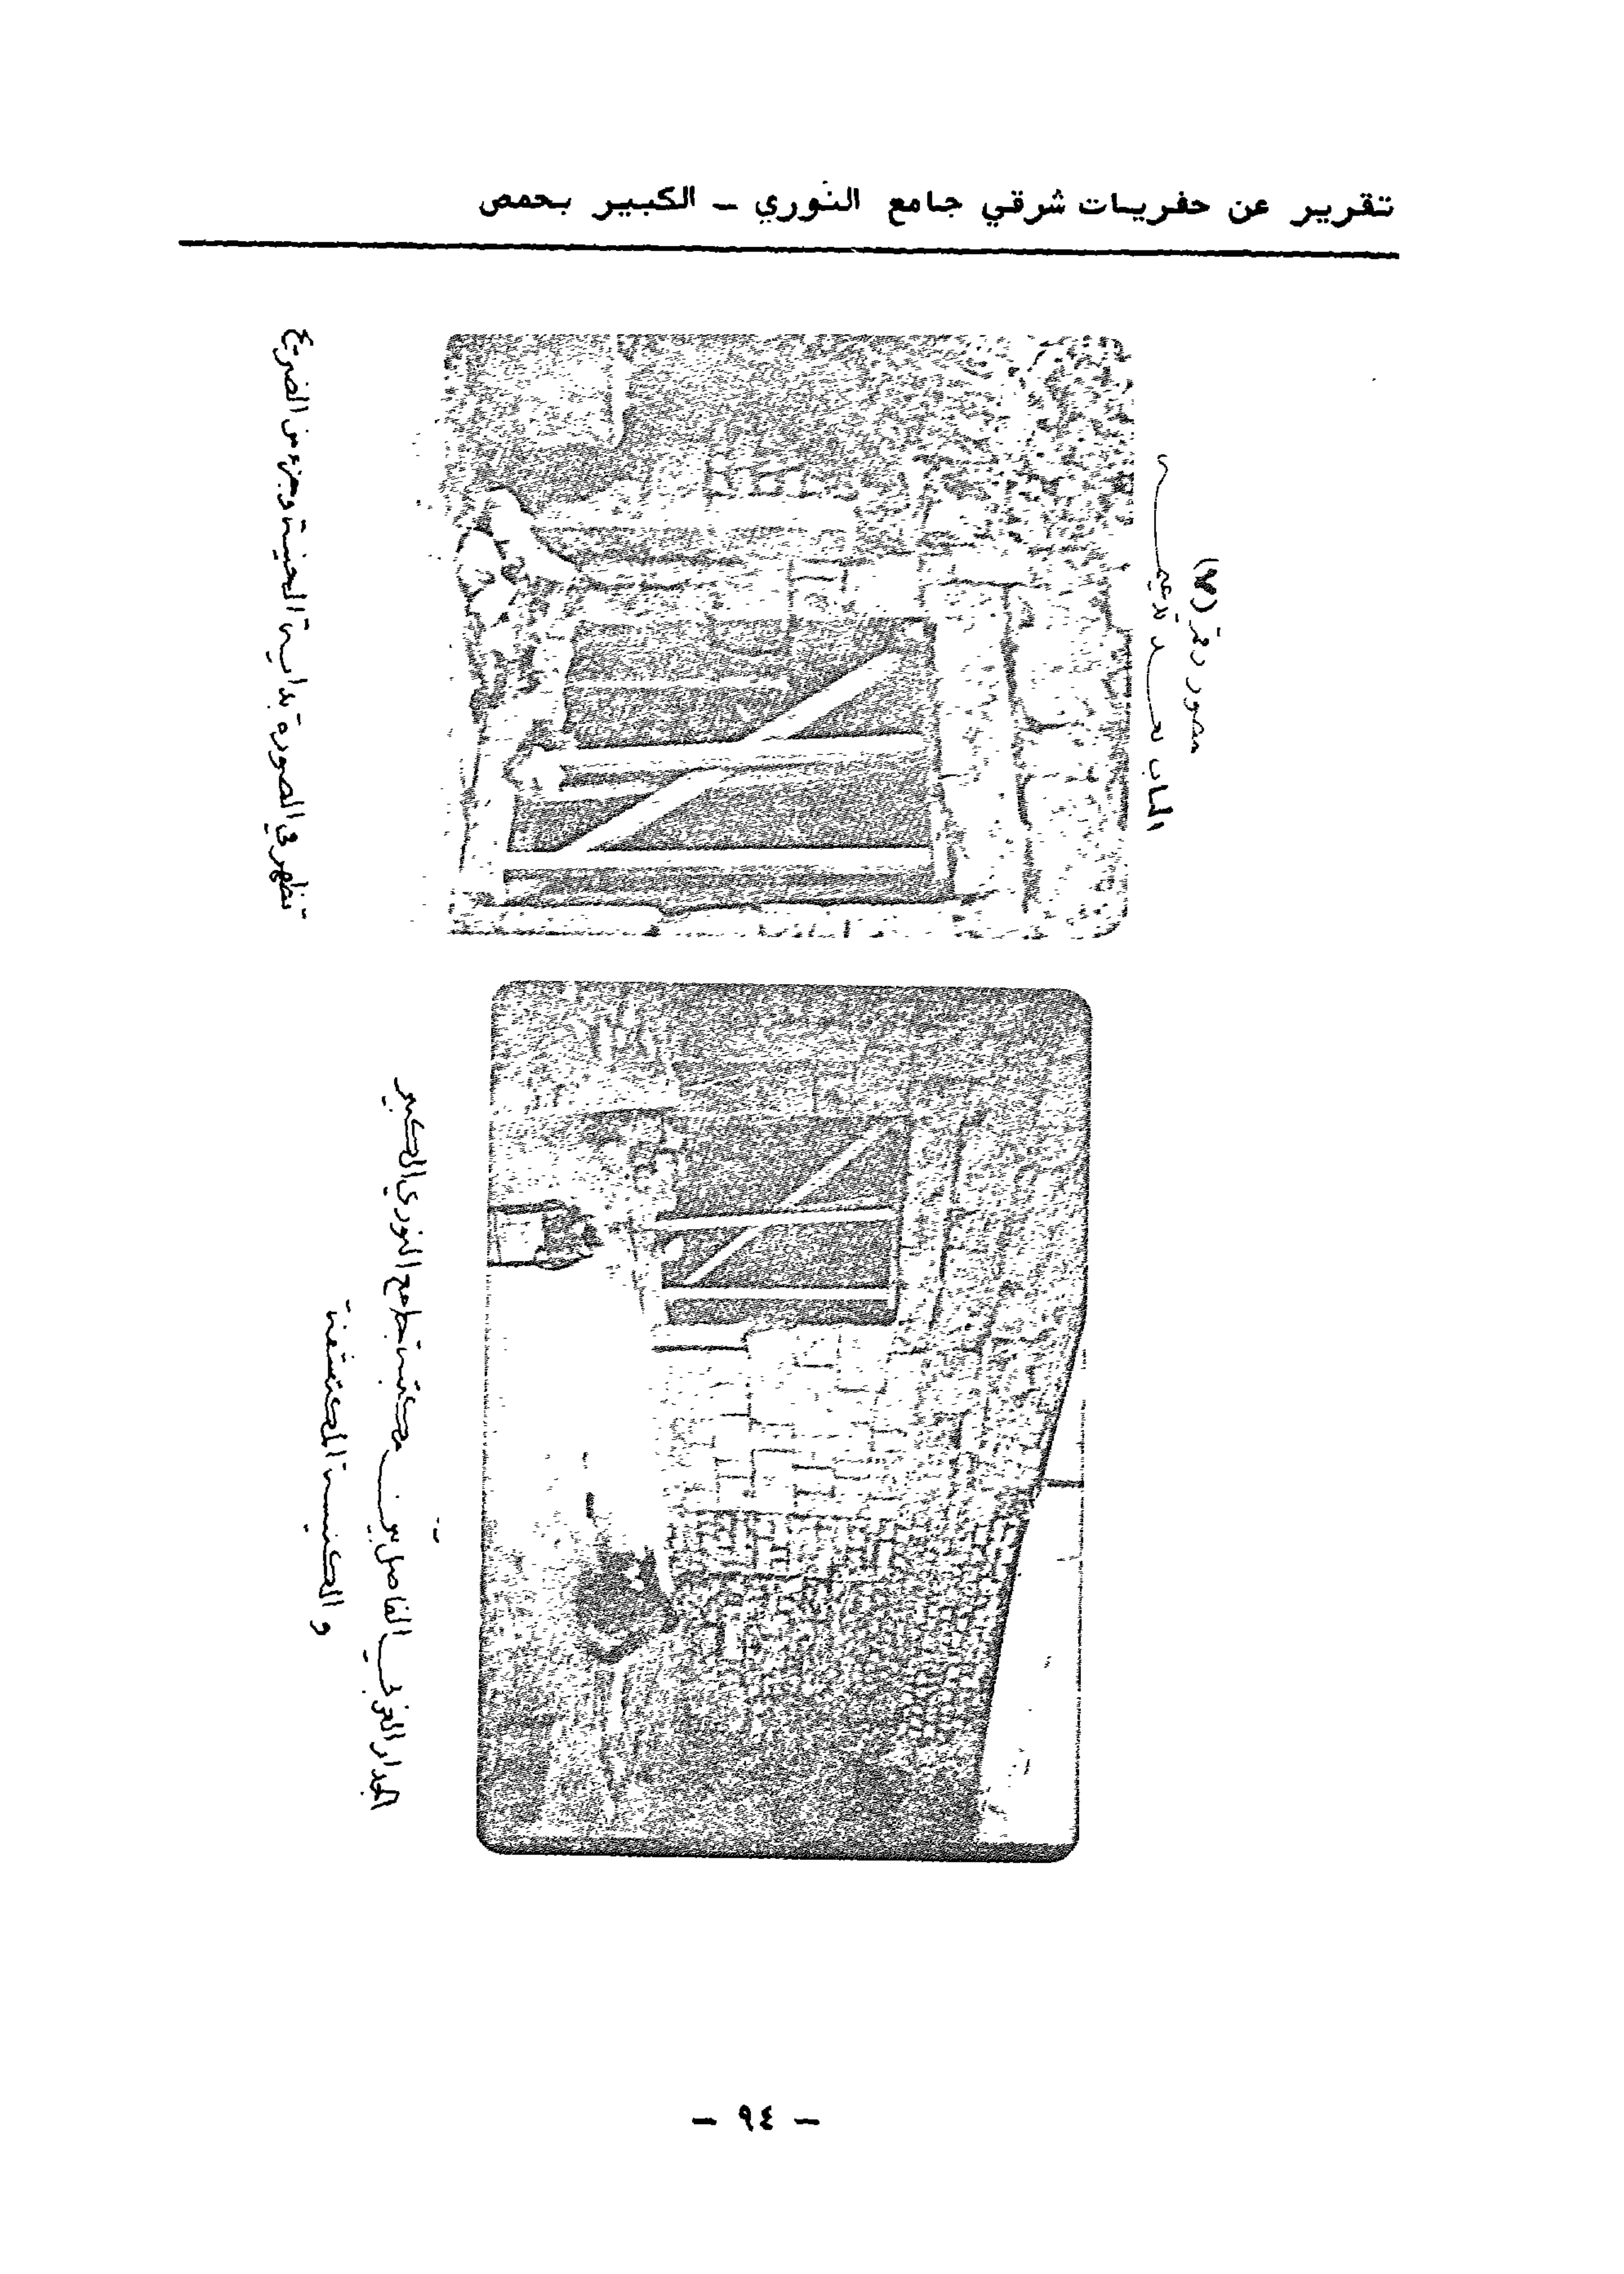 تقرير عن حفريات شرقي جامع النوري - الكبير بحمص
مصور رقم (٧)
الباب بعد تدعيمه
تظهر في الصورة بداية الحنية وجزء من الضريح
الجدار الغربي الفاصل بين مكتبة جامع النوري الكبير
و الكنيسة المكتشفة
- ٩٤ -